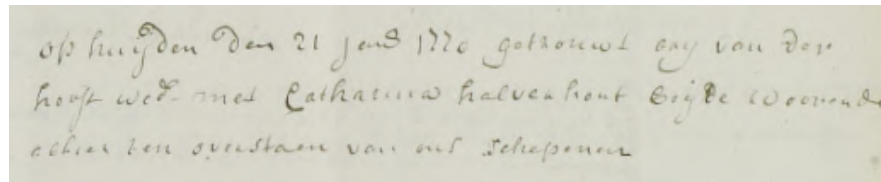 op huijden den 21 janӡ 1770 getrouwt van der
hooft wedr met Catharina halvenhout Beijde woonende
alhier ten overstaen van ons Schepenen